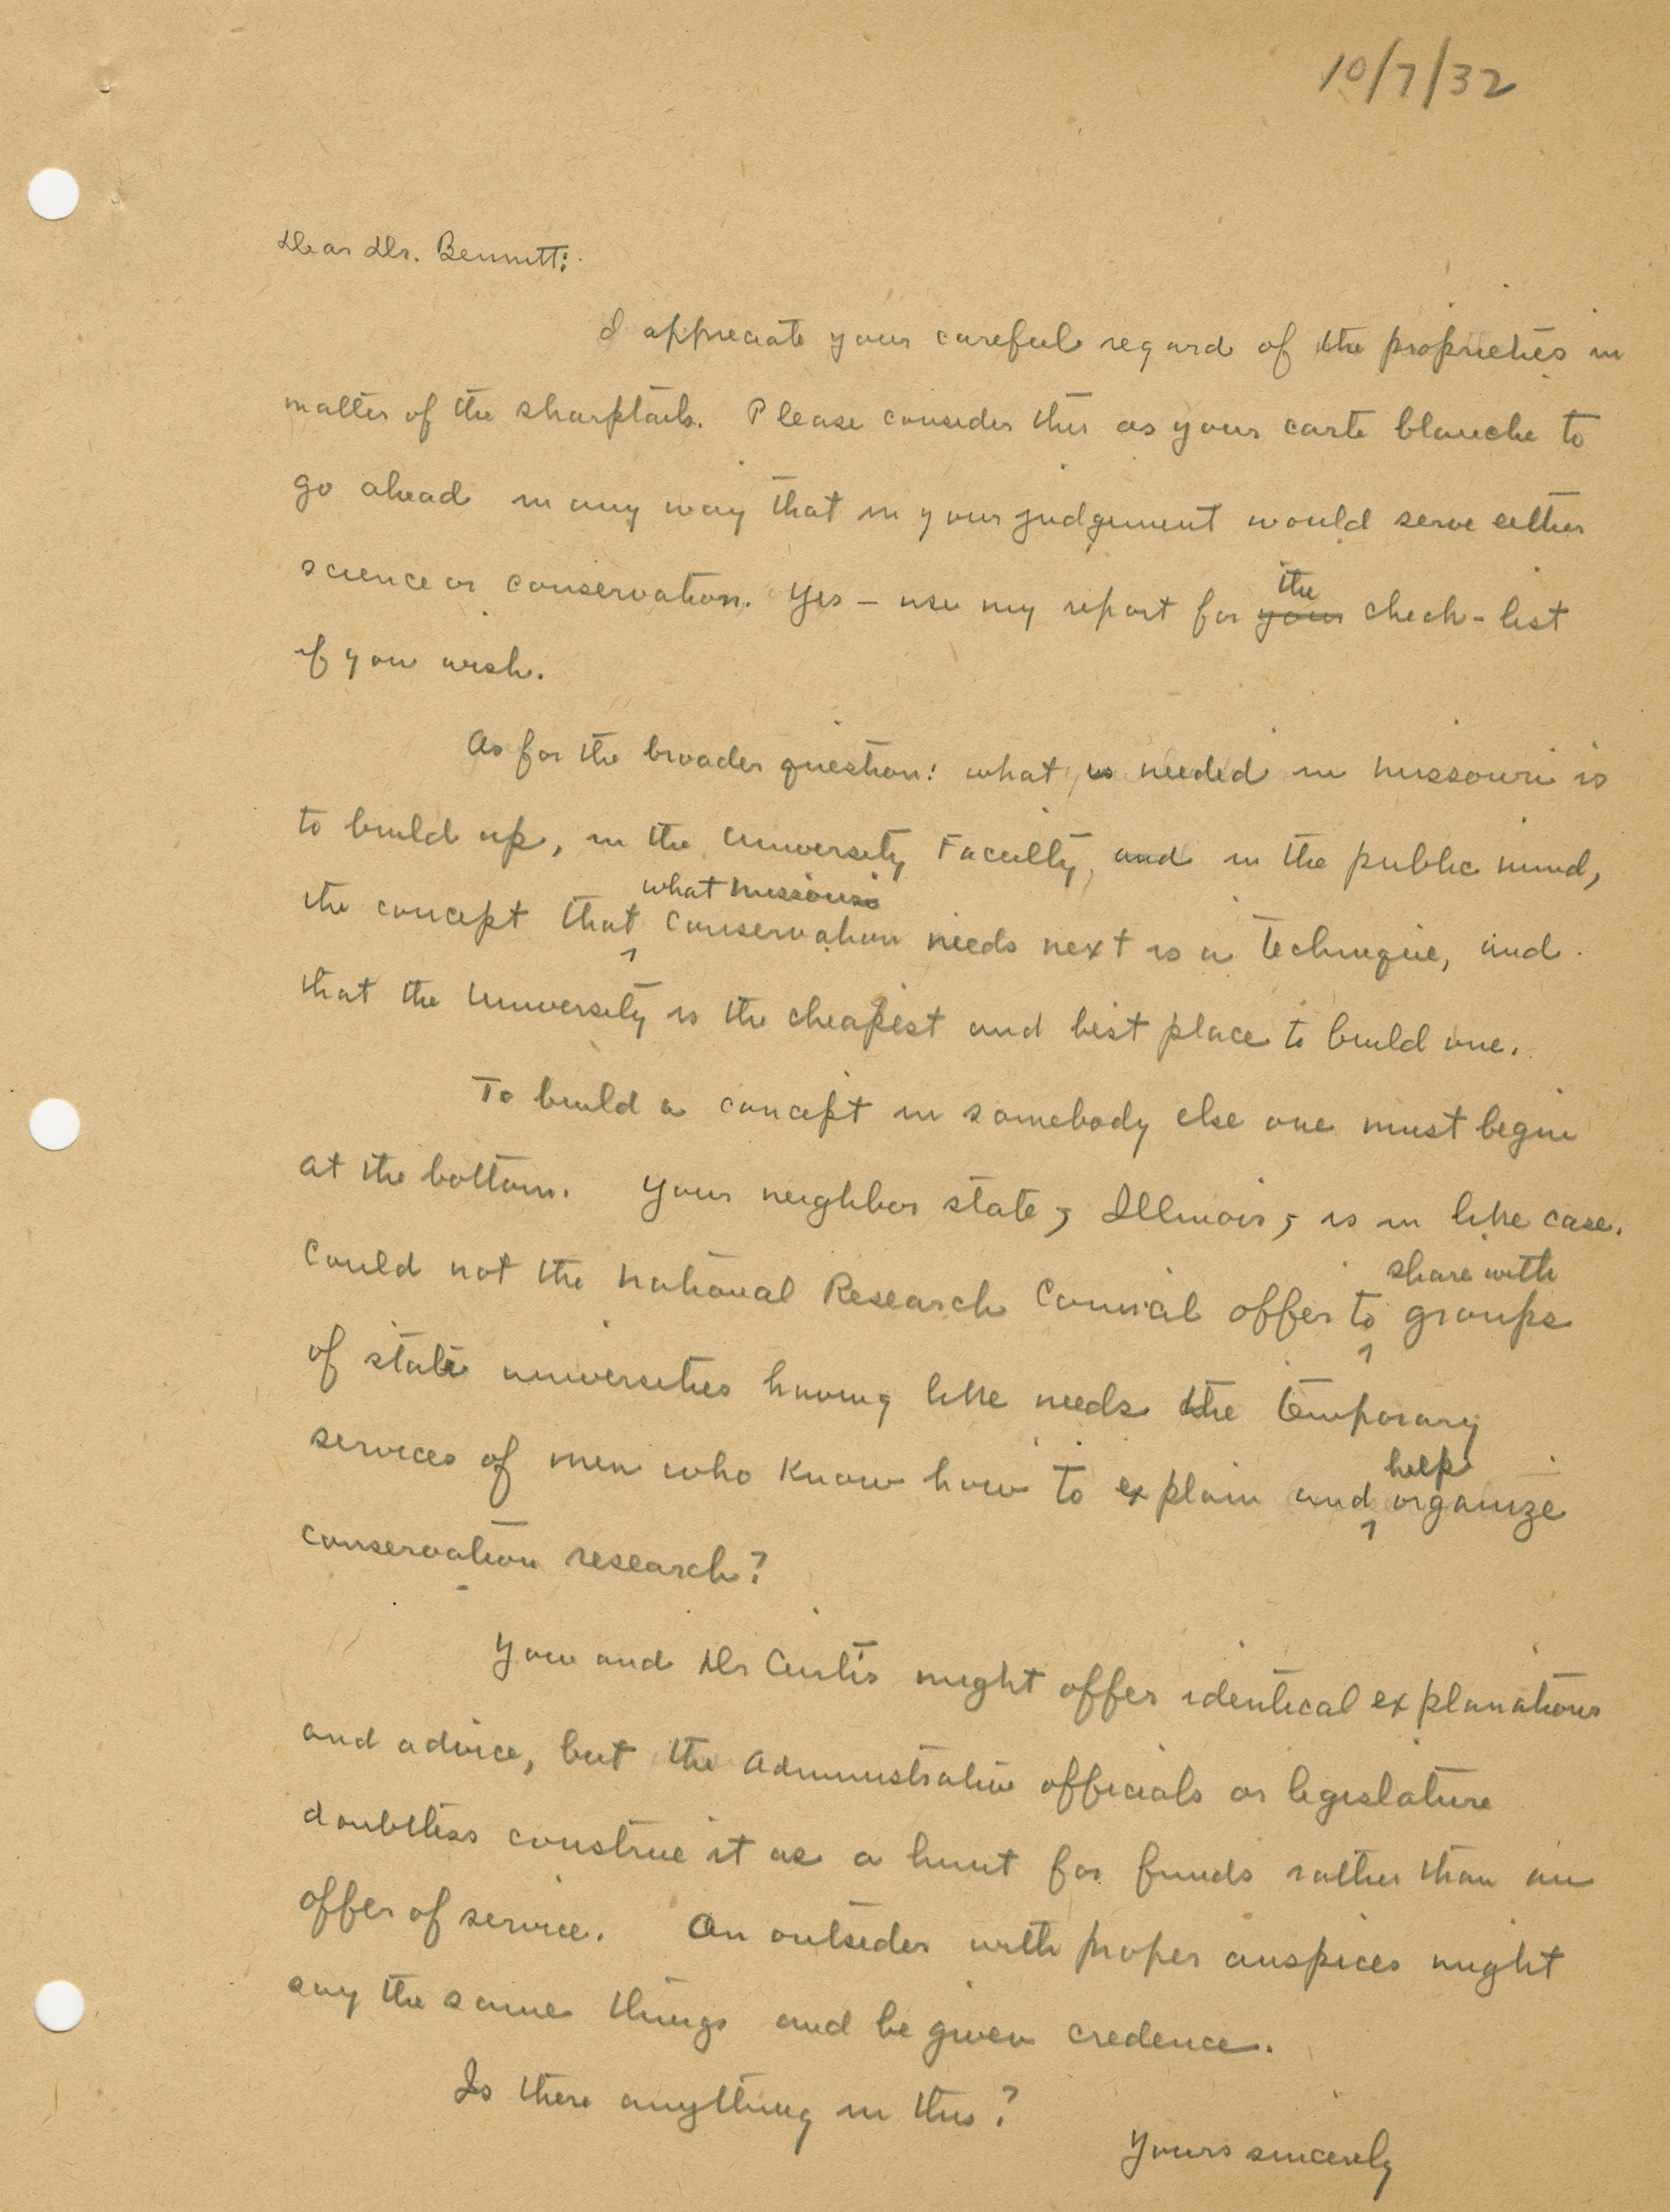 10/7/32
Dear Dr. Bennitt:
I appreciate your careful regard of the proprieties in
matter of the sharptails. Please consider this as your carte blanche to
go ahead in any way that in your judgement would serve either
science or conservation. Yes - use my report for your the check-list
if you wish.
As for the broader question: what is needed in Missouri is
to build up, in the University Faculty, and in the public mind,
the concept that what Missouri conservation needs next is a technique, and
that the University is the cheapest and best place to build one.
To build a concept in somebody else one must begin
at the bottom. Your neighbor state, Illinois, is in like case.
Could not the National Research Council offer to share with groups
of state universities having like needs the temporary
services of men who know how to explain and help organize
conservation research?
You and Dr Curtis might offer identical explanations
and advice, but the administrative officials or legislature
doubtless construe it as a hunt for funds rather than an
offer of service. An outsider with proper auspices might
say the same things and be given credence.
Is there anything in this?
Yours sincerely